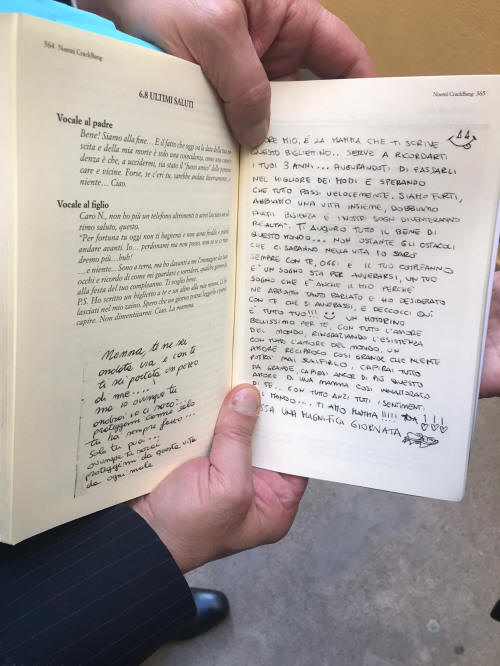 364 Noemi CrackBang
6.8 ULTIMI SALUTI
Vocale al padre
Bene! Siamo alla fine… E il fatto che oggi sia la data della tua
scita e della mia morte è solo una coincidenza, come una coinci-
denza è che, a uccidermi, sia stato il "Sacro amico" delle persone
care e vicine. Forse, se c'eri tu, sarebbe andata diversamente, o
niente… Ciao.
Vocale al figlio
Caro N., non ho più un telefono altrimenti ti avrei lasciato un
timo saluto, questo.
"Per fortuna tu oggi non ti
andare avanti. Io… perdonami ma non posso, non so se ci
dremo più…buh!
…e niente… Sono a terra, ma ho davanti a me l'immagine
occhi e ricordo di come mi guardavi e sorridevi, qualche giorno
alla festa del tuo compleanno. Ti voglio bene.
P.S. Ho scritto un biglietto a te e un altro alla mia nonna. Li ho
lasciati nel mio zaino. Spero che un giorno potrai leggerlo e
capire. Non dimenticarmi. Ciao. La mamma.
Nonna, te ne sei
andata via e con te
ti sei portata un pezzo
di me…!
ma io ovunque tu
andrai io ci sarò…
proteggimi come solo
tu hai sempre fatto…
solo tu puoi…
ovunque tu sarai
proteggimi da questa vita
da ogni male
Noemi CrackBang 365
MIO, È LA MAMMA CHE TI SCRIVE
QUESTO BIGLIETTINO… SERVE A RICORDARTI
I TUOI 3 ANNI… AUGURANDOTI DI PASSARLI
NEL MIGLIORE DEI MODI E SPERANDO
CHE TUTTO PASSI VELOCEMENTE. SIAMO FORTI,
ABBIAMO UNA VITA INSIEME, DOBBIAMO
PAZIENZA E I NOSTRI SOGNI DIVENTERANNO
REALTÀ". TI AUGURO TUTTO IL BENE DI
QUESTO MONDO… NON OSTANTE GLI OSTACOLI
CHE CI SARANNO NELLA VITA IO SARÒ
SEMPRE CON TE, OGGI È IL TUO COMPLEANNO
E UN SOGNO STA PER AVVERARSI, UN TUO
SOGNO CHE È ANCHE IL MIO PERCHÉ
NE ABBIAMO TANTO PARLATO E HO DESIDERATO
CON TE CHE SI AVVERASSI, E DECCOCI QUI
È TUTTO TUO!!! UN MOTORINO
BELLISSIMO PER TE, CON TUTTO L'AMORE
DEL MONDO, RINGRAZIANDO L'ESISTENZA
CON TUTTO L'AMORE DEL MONDO, UN
AMORE RECIPROCO COSÌ GRANDE CHE NIENTE
POTRÀ MAI CAPIRAI TUTTO
DA GRANDE, CAPIRAI ANCOR DI PIÙ QUESTO
AMORE DI UNA MAMMA COSÌ INNAMORATO
DI TE. CON TUTTO ANZI TUTTI I SENTIMENTI
MONDO… TI AMO MAMMA!!!!
UNA MAGNIFICA
GIORNATA